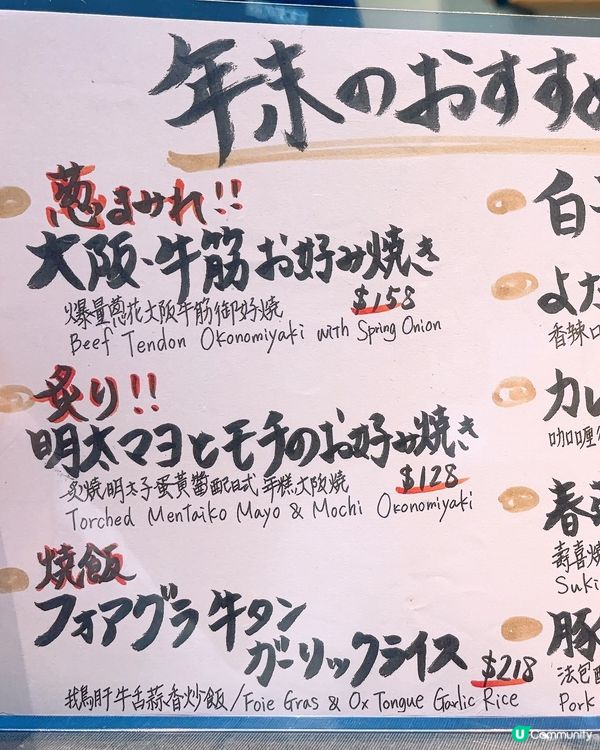 年末のおすすめ
葱まみれ!!
大阪・牛筋お好み焼き
$158
爆量蔥花大阪牛筋御好焼
Beef Tendon Okonomiyaki with Spring Onion
炙り!!
明太マヨとモチのお好み焼き
$128
炙燒明太子蛋黃醬配日式年糕大阪燒
Torched Mentaiko Mayo & Mochi Okonomiyaki
焼飯
フォアグラ牛タン
ガーリックライス
$218
鵝肝牛舌蒜香炒飯/Foie Gras & Ox Tongue Garlic Rice
白
よだ
香辣口
カレ
咖喱
春
壽喜燒
Suki
豚
法包配
Pork
U Community